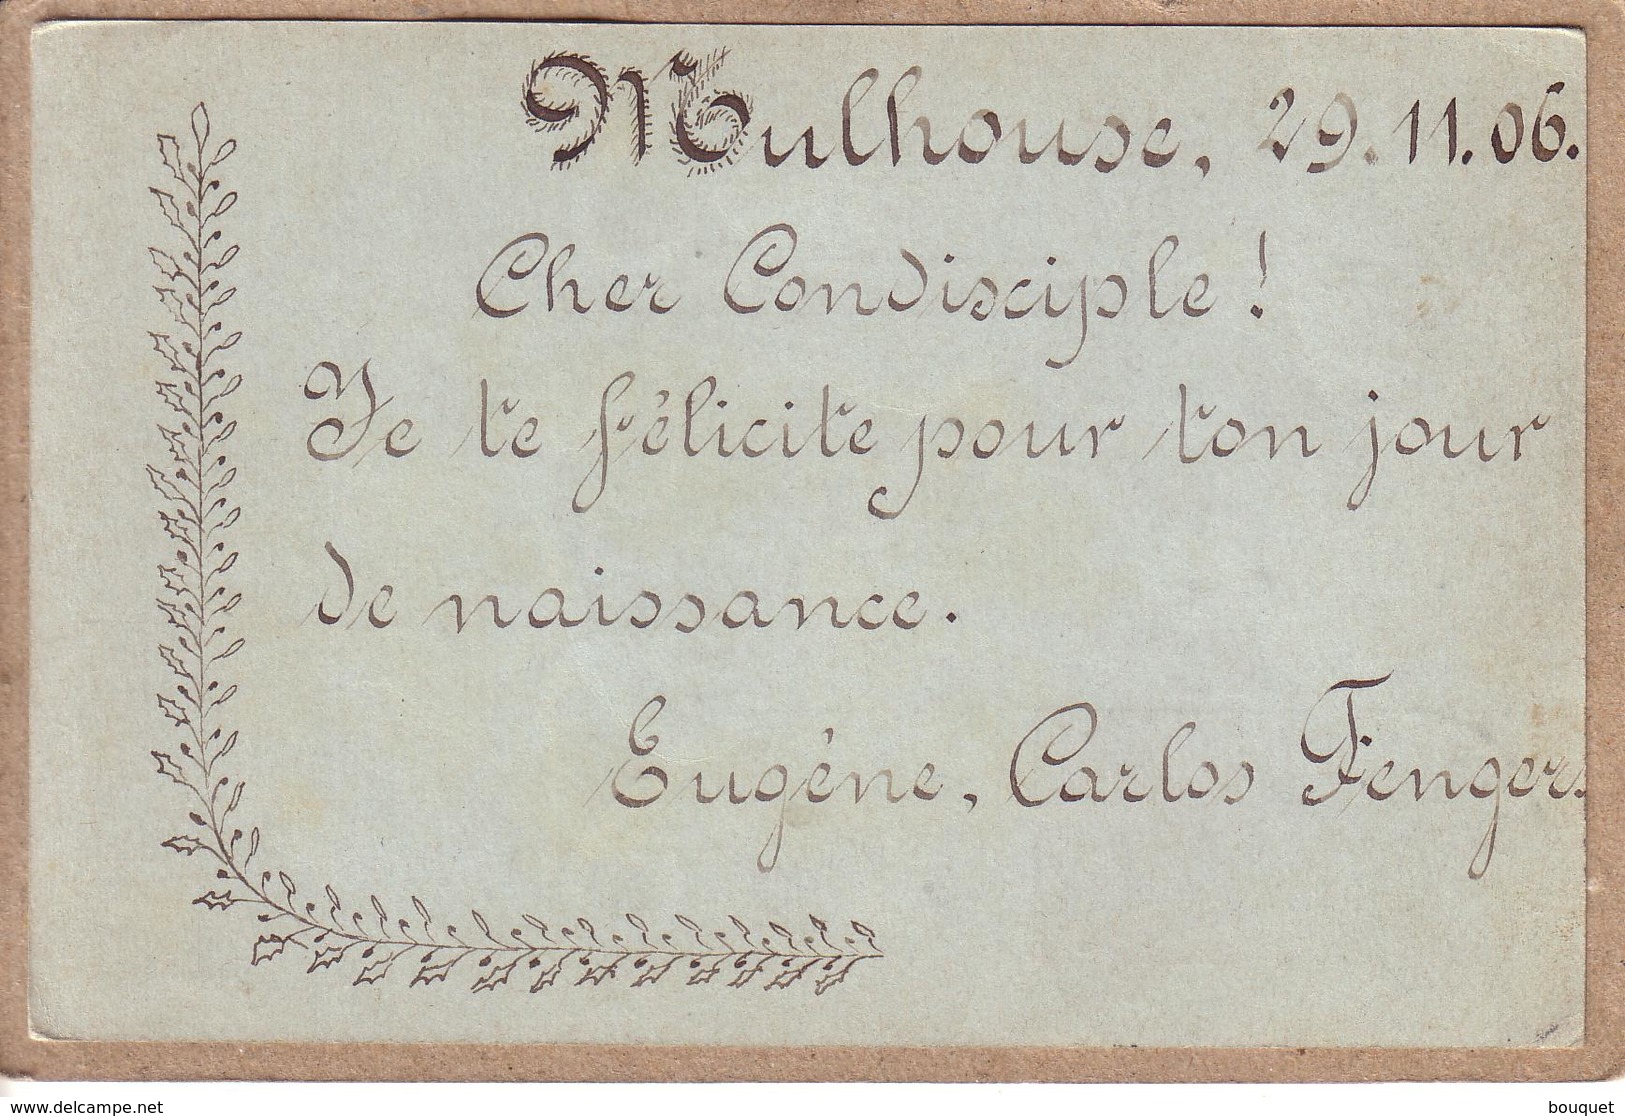 Mulhouse, 29.11.06.
Cher Condisciple!
Je te félicite pour ton jour
de naissance.
Eugéne, Carlos Fengers
www.delcampe.net
bouquet